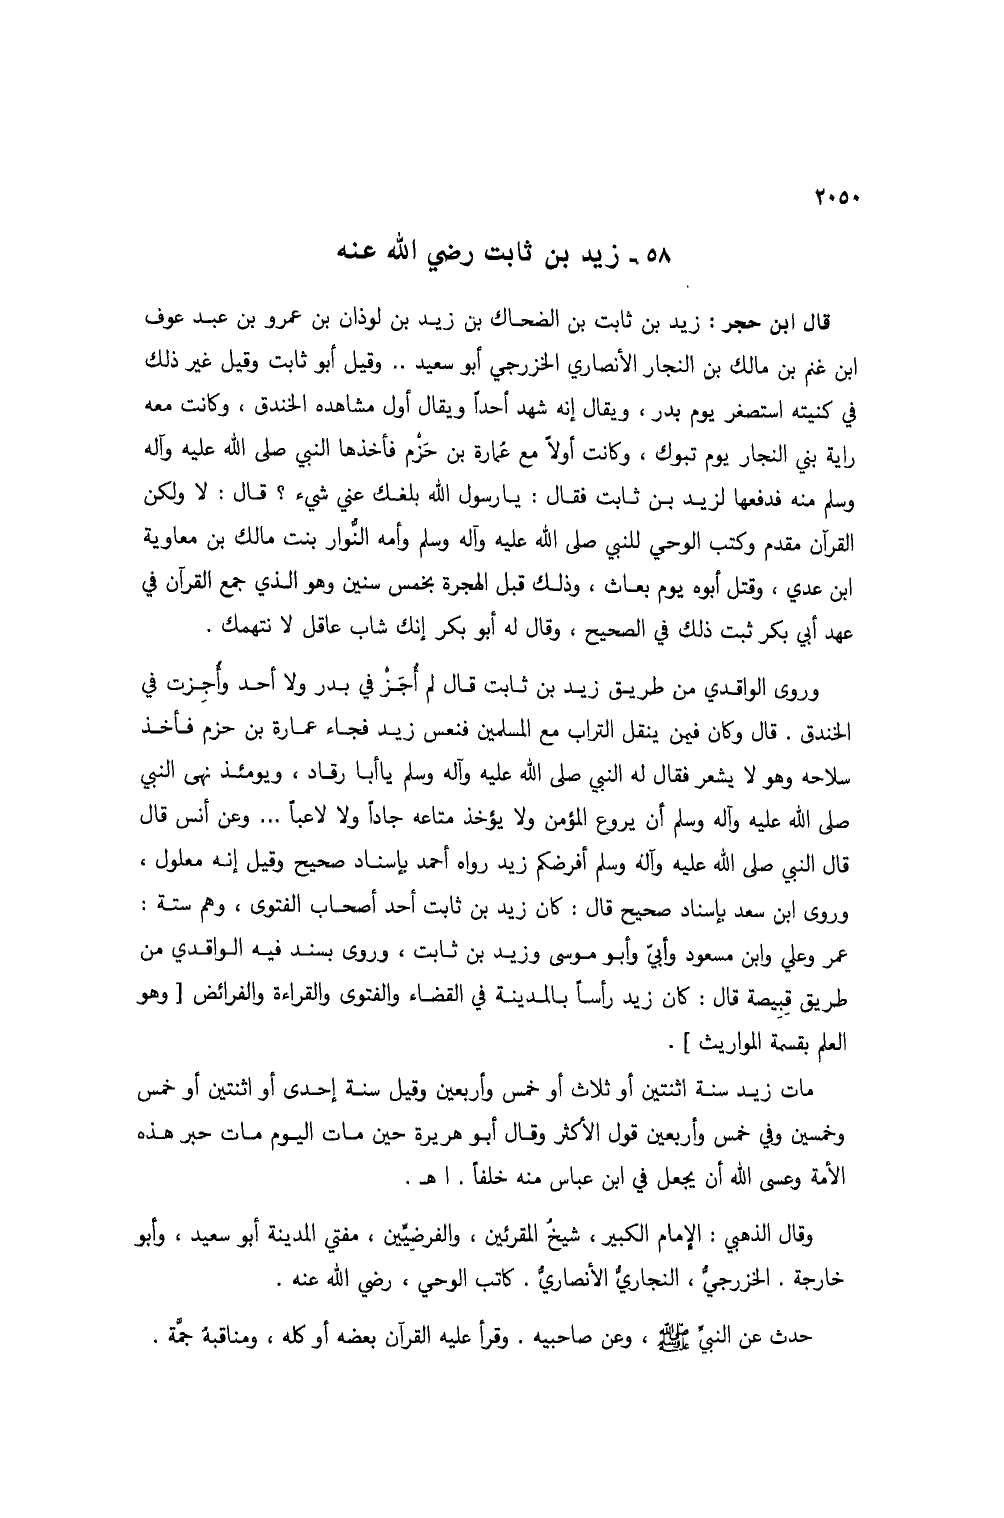 ٢٠٥٠
٥٨ - زيد بن ثابت رضي الله عنه
قال ابن حجر : زيد بن ثابت بن الضحاك بن زيد بن لوذان بن عمرو بن عبد عوف
ابن غنم بن مالك بن النجار الأنصاري الخزرجي أبو سعيد .. وقيل أبو ثابت وقيل غير ذلك
في كنيته استصغر يوم بدر ، ويقال إنه شهد أحداً ويقال أول مشاهده الخندق ، وكانت معه
راية بني النجار يوم تبوك ، وكانت أولاً مع عُمارة بن حَزْم فأخذها النبي صلى الله عليه وآله
وسلم منه فدفعها لزيد بن ثابت فقال : يارسول الله بلغك عني شيء ؟ قال : لا ولكن
القرآن مقدم وكتب الوحي للنبي صلى الله عليه وآله وسلم وأمه النُّوار بنت مالك بن معاوية
ابن عدي ، وقتل أبوه يوم بعاث ، وذلك قبل الهجرة بخمس سنين وهو الذي جمع القرآن في
عهد أبي بكر ثبت ذلك في الصحيح ، وقال له أبو بكر إنك شاب عاقل لا نتهمك .
وروى الواقدي من طريق زيد بن ثابت قال لم أُجَزْ في بدر ولا أحد وأُجِزت في
الخندق . قال وكان فيمن ينقل التراب مع المسلمين فنعس زيد فجاء عمارة بن حزم فأخذ
سلاحه وهو لا يشعر فقال له النبي صلى الله عليه وآله وسلم ياأبا رقاد ، ويومئذ نهى النبي
صلى الله عليه وآله وسلم أن يروع المؤمن ولا يؤخذ متاعه جاداً ولا لاعباً ... وعن أنس قال
قال النبي صلى الله عليه وآله وسلم أفرضكم زيد رواه أحمد بإسناد صحيح وقيل إنه معلول ،
وروى ابن سعد بإسناد صحيح قال : كان زيد بن ثابت أحد أصحاب الفتوى ، وهم ستة :
عمر وعلي وابن مسعود وأبيّ وأبو موسى وزيد بن ثابت ، وروى بسند فيه الواقدي من
طريق قَبِيصة قال : كان زيد رأساً بالمدينة في القضاء والفتوى والقراءة والفرائض [ وهو
العلم بقسمة المواريث ] .
مات زيد سنة اثنتين أو ثلاث أو خمس وأربعين وقيل سنة إحدى أو اثنتين أو خمس
وخمسين وفي خمس وأربعين قول الأكثر وقال أبو هريرة حين مات اليوم مات حبر هذه
الأمة وعسى الله أن يجعل في ابن عباس منه خلفاً . ا هـ .
وقال الذهبي : الإمام الكبير ، شيخُ المقرئين ، والفرضيِّين ، مفتي المدينة أبو سعيد ، وأبو
خارجة . الخزرجيُّ ، النجاريُّ الأنصاريُّ . كاتب الوحي ، رضي الله عنه .
حدث عن النبيِّ ﷺ ، وعن صاحبيه . وقرأ عليه القرآن بعضه أو كله ، ومناقبهُ جمَّة .